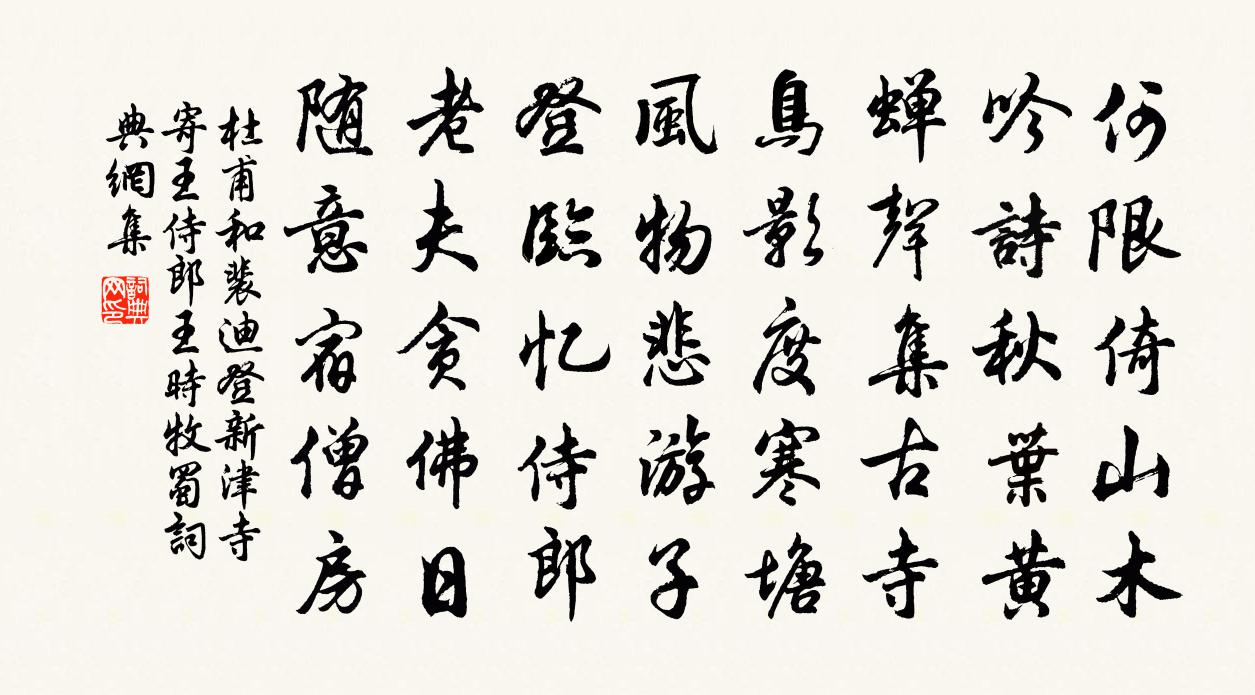 何限倚山木
吟詩秋葉黃
蟬聲集古寺
鳥影度寒塘
風物悲游子
登臨忆侍郎
老夫貪佛日
随意宿僧房
杜甫和裴迪登新津寺
寄王侍郎王時牧蜀詞
典網集
詞典网印